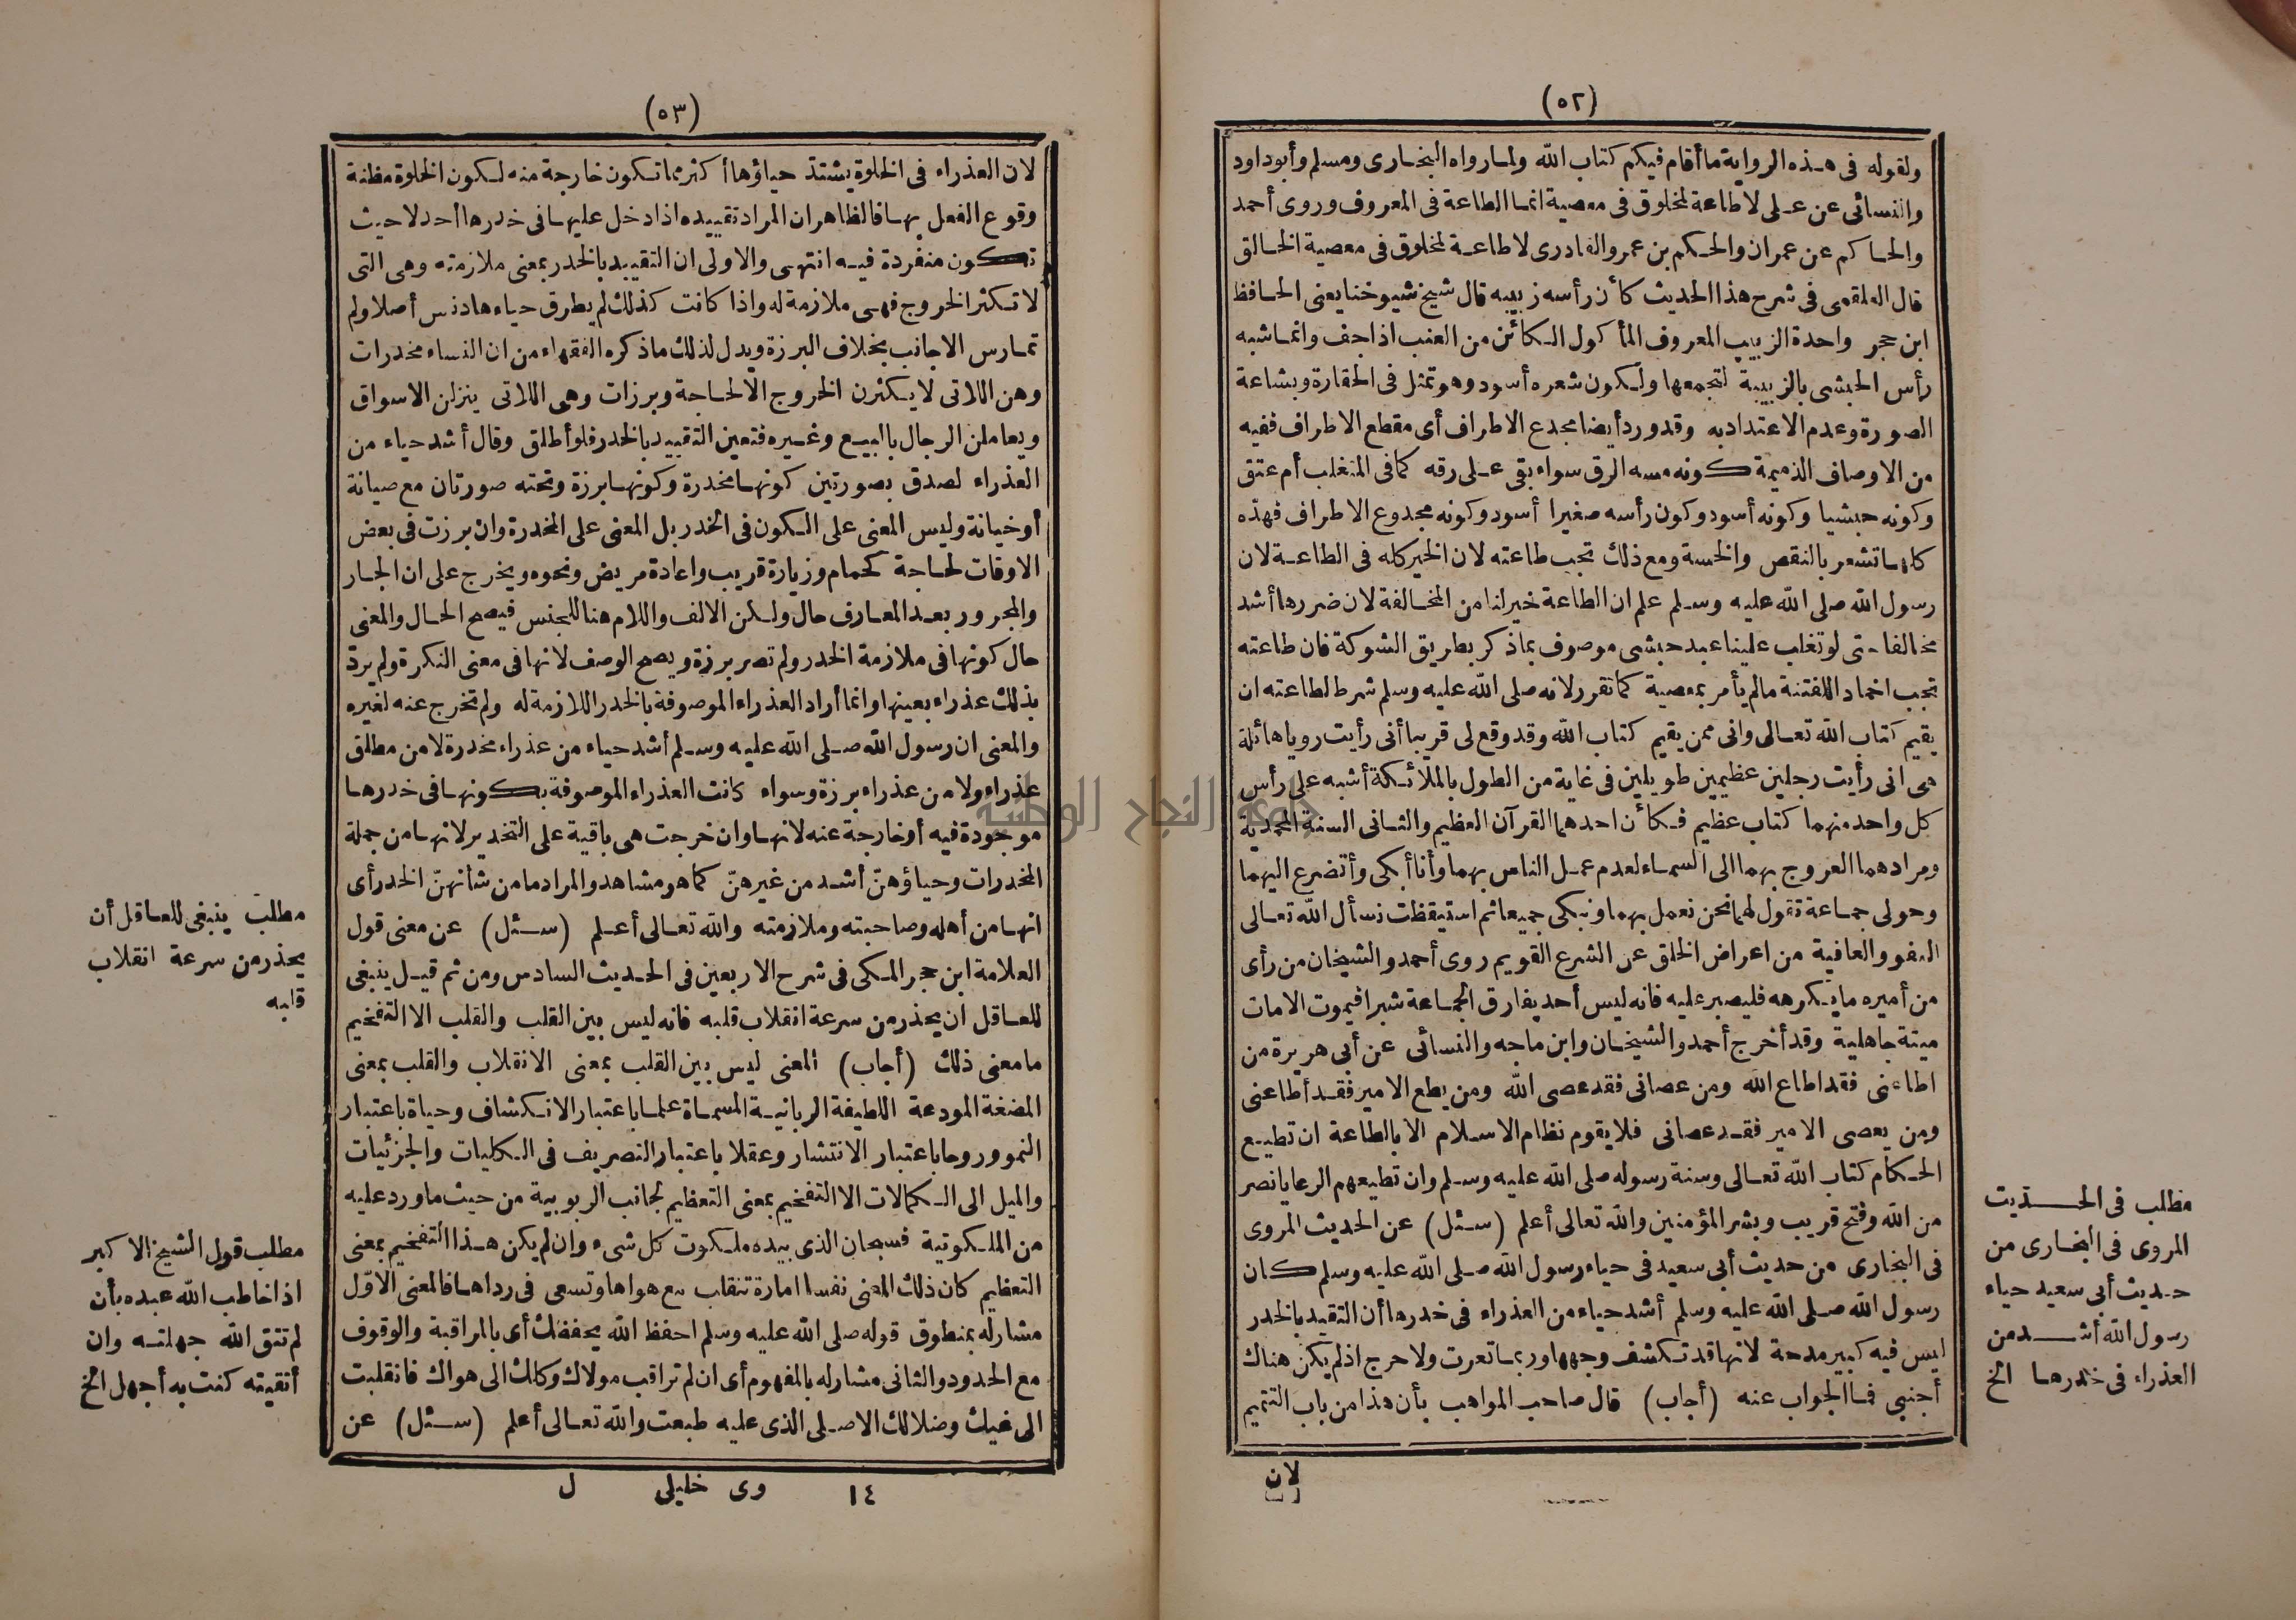 (٥٢)
ولقوله فى هذه الرواية ما أقام فيكم كتاب الله ولما رواه البخارى ومسلم وأبو داود
والنسائى عن على لا طاعة لمخلوق فى معصية انما الطاعة فى المعروف وروى أحمد
والحاكم عن عمران والحكم بن عمرو الغادرى لا طاعة لمخلوق فى معصية الخالق
قال العلقمى فى شرح هذا الحديث كأن رأسه زبيبه قال شيخ شيوخنا يعنى الحافظ
ابن حجر واحدة الزبيب المعروف المأكول الكائن من العنب اذا جف وانما شبه
رأس الحبشى بالزبيبة لتجمعها ولكون شعره أسود وهو تمثل فى الحقارة وبشاعة
الصورة وعدم الاعتداد به وقد ورد أيضا مجدع الاطراف أى مقطع الاطراف ففيه
من الاوصاف الذميمة كونه مسه الرق سواء بقى على رقه كما فى المتغلب أم عتق
وكونه حبشيا وكونه أسود وكون رأسه صغيرا أسود وكونه مجدوع الاطراف فهذه
كلها تشعر بالنقص والخسة ومع ذلك تجب طاعته لان الخير كله فى الطاعة لان
رسول الله صلى الله عليه وسلم علم ان الطاعة خير لنا من المخالفة لان ضررها أشد
مخالفا حتى لو تغلب علينا عبد حبشى موصوف بما ذكر بطريق الشوكة فان طاعته
تجب اخمادا للفتنة ما لم يأمر بمعصية كما تقرر لانه صلى الله عليه وسلم شرط لطاعته ان
يقيم كتاب الله تعالى وانى ممن يقيم كتاب الله وقد وقع لى قريبا أنى رأيت رويا هائلة
هى انى رأيت رجلين عظيمين طويلين فى غاية من الطول بالملائكة أشبه على رأس
كل واحد منهما كتاب عظيم فكأن احدهما القرآن العظيم والثانى السنة المحمدية
ومرادهما العروج بهما الى السماء لعدم عمل الناس بهما وأنا أبكى وأتضرع اليهما
وحولى جماعة تقول لهما نحن نعمل بهما ونبكى جميعا ثم استيقظت نسأل الله تعالى
العفو والعافية من اعراض الخلق عن الشرع القويم روى أحمد والشيخان من رأى
من أميره ما يكرهه فليصبر عليه فانه ليس أحد يفارق الجماعة شبرا فيموت الا مات
ميتة جاهلية وقد أخرج أحمد والشيخان وابن ماجه والنسائى عن أبى هريرة من
اطاعنى فقد اطاع الله ومن عصانى فقد عصى الله ومن يطع الامير فقد أطاعنى
ومن يعصى الامير فقد عصانى فلا يقوم نظام الاسلام الا بالطاعة ان تطيع
الحكام كتاب الله تعالى وسنة رسوله صلى الله عليه وسلم وان تطيعهم الرعايا نصر
من الله وفتح قريب وبشر المؤمنين والله تعالى أعلم (سئل) عن الحديث المروى
فى البخارى من حديث أبى سعيد فى حياء رسول الله صلى الله عليه وسلم كان
رسول الله صلى الله عليه وسلم أشد حياء من العذراء فى خدرها أن التقيد بالخدر
ليس فيه كبير مدحة لانها قد تكشف وجهها وربما تعرت ولا حرج اذ لم يكن هناك
أجنبى فما الجواب عنه (أجاب) قال صاحب المواهب بأن هذا من باب التتميم
لان
مطلب فى الحديث
المروى فى البخارى من
حديث أبى سعيد حياء
رسول الله أشد من
العذراء فى خدرها الخ
(٥٣)
لان العذراء فى الخلوة يشتد حياؤها أكثر مما تكون خارجة منه لكون الخلوة مظنة
وقوع الفعل بها فالظاهر ان المراد تقييده اذا دخل عليها فى خدرها أحد لا حيث
تكون منفردة فيه انتهى والاولى ان التقييد بالخدر بمعنى ملازمته وهى التى
لا تكثر الخروج فهى ملازمة له واذا كانت كذلك لم يطرق حياءها دنس أصلا ولم
تمارس الاجانب بخلاف البرزة ويدل لذلك ما ذكره الفقهاء من ان النساء مخدرات
وهن اللاتى لا يكثرن الخروج الا لحاجة وبرزات وهى اللاتى ينزلن الاسواق
ويعاملن الرجال بالبيع وغيره فتعين التقييد بالخدر فلو أطلق وقال أشد حياء من
العذراء لصدق بصورتين كونها مخدرة وكونها برزة وتحته صورتان مع صيانة
أو خيانة وليس المعنى على الكون فى الخدر بل المعنى على المخدرة وان برزت فى بعض
الاوقات لحاجة كحمام وزيارة قريب واعادة مريض ونحوه ويخرج على ان الجار
والمجرور بعد المعارف حال ولكن الالف واللام هنا للجنس فيصح الحال والمعنى
حال كونها فى ملازمة الخدر ولم تصر برزة ويصح الوصف لانها فى معنى النكرة ولم يرد
بذلك عذراء بعينها وانما أراد العذراء الموصوفة بالخدر اللازمة له ولم تخرج عنه لغيره
والمعنى ان رسول الله صلى الله عليه وسلم أشد حياء من عذراء مخدرة لا من مطلق
عذراء ولا من عذراء برزة وسواء كانت العذراء الموصوفة بكونها فى خدرها
موجودة فيه أو خارجة عنه لانها وان خرجت هى باقية على التخدير لانها من جملة
المخدرات وحياؤهن أشد من غيرهن كما هو مشاهد والمراد ما من شأنهن الخدر أى
انها من أهله وصاحبته وملازمته والله تعالى أعلم (سئل) عن معنى قول
العلامة ابن حجر المكى فى شرح الاربعين فى الحديث السادس ومن ثم قيل ينبغى
للعاقل ان يحذر من سرعة انقلاب قلبه فانه ليس بين القلب والقلب الا التفخيم
ما معنى ذلك (أجاب) المعنى ليس بين القلب بمعنى الانقلاب والقلب بمعنى
المضغة المودعة اللطيفة الربانية المسماة علما باعتبار الانكشاف وحياة باعتبار
النمو وروحا باعتبار الانتشار وعقلا باعتبار التصريف فى الكليات والجزئيات
والميل الى الكمالات الا التفخيم بمعنى التعظيم لجانب الربوبية من حيث ما ورد عليه
من الملكوتية فسبحان الذى بيده ملكوت كل شىء وان لم يكن هذا التفخيم بمعنى
التعظيم كان ذلك المعنى نفسا امارة تنقلب مع هواها وتسعى فى رداها فالمعنى الاول
مشار له بمنطوق قوله صلى الله عليه وسلم احفظ الله يحفظك أى بالمراقبة والوقوف
مع الحدود والثانى مشار له بالمفهوم أى ان لم تراقب مولاك وكلك الى هواك فانقلبت
الى غيك وضلالك الاصلى الذى عليه طبعت والله تعالى أعلم (سئل) عن
١٤ وى خليلى ل
مطلب ينبغى للعاقل أن
يحذر من سرعة انقلاب
قلبه
مطلب قول الشيخ الاكبر
اذا خاطب الله عبده بأن
لم تتق الله جهلته وان
أتقيته كنت به أجهل الخ
جامعة النجاح الوطنية